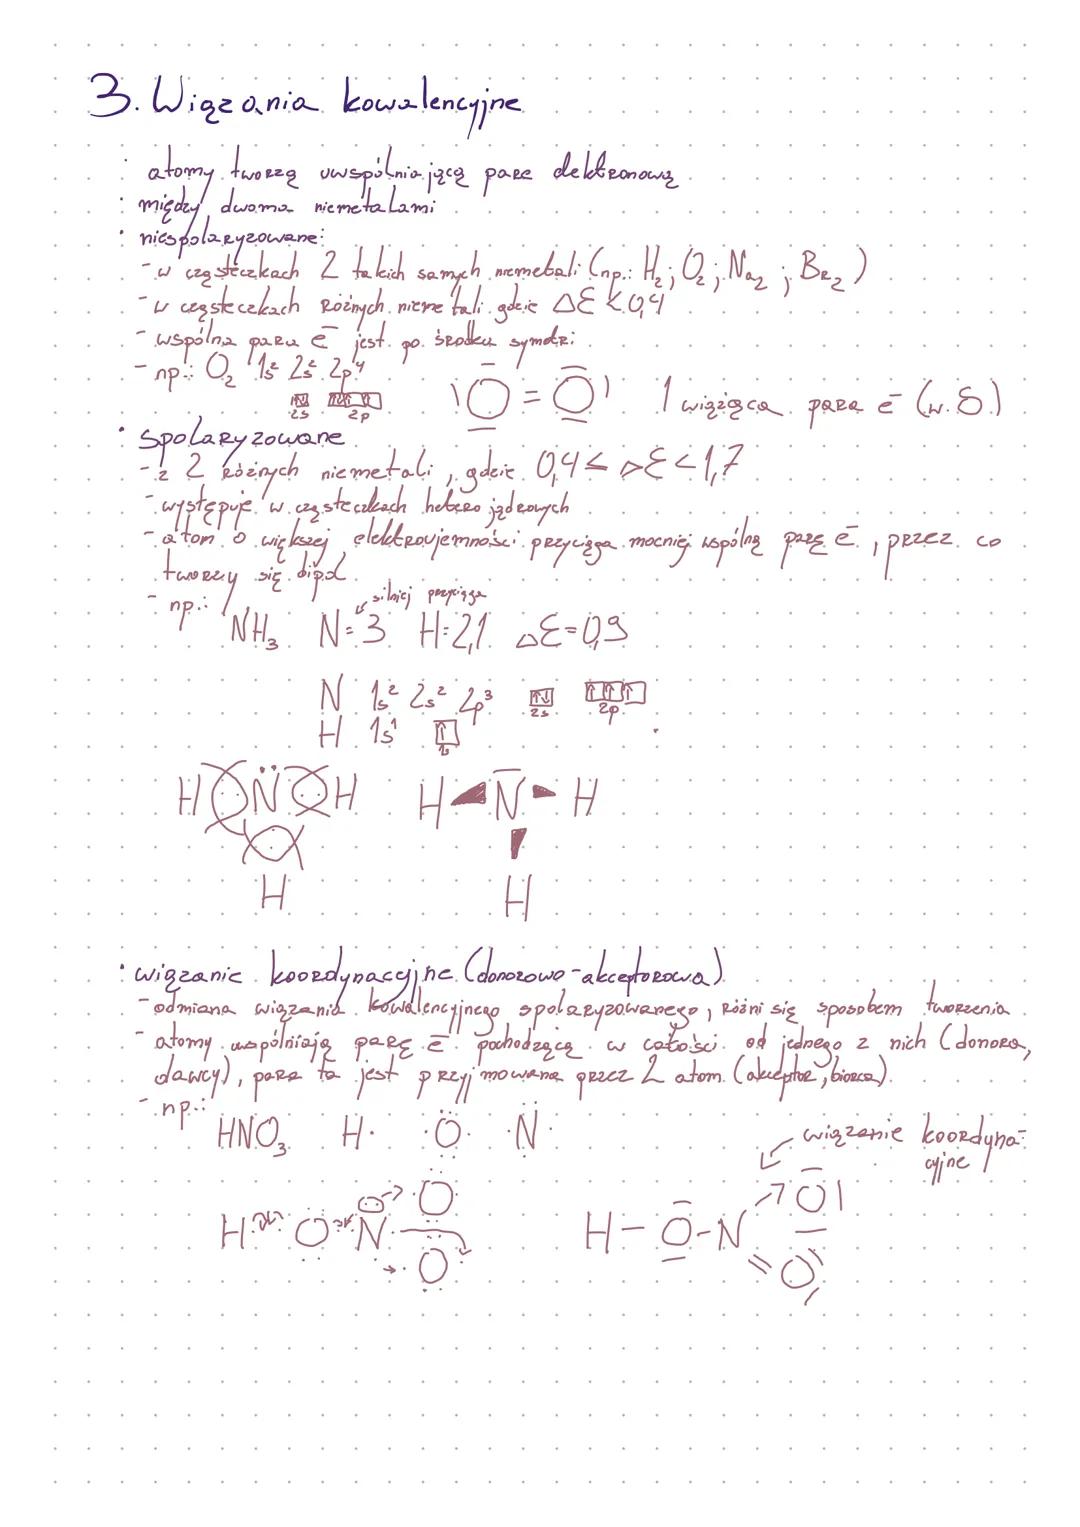 3. Wiązania kowalencyjne
· atomy tworzą uwspólniającą parę elektronową
· między dwoma niemetalami
· niespolaryzowane:
- w cząsteczkach 2 takich samych niemetali (np.: H₂; O₂; Na₂; Br₂)
- w cząsteczkach różnych niemetali gdzie ΔE < 0,4
- wspólna para e⁻ jest po środku symetri
- np.: O₂ 1s² 2s² 2p⁴
2s 2p
O = O 1 wiążąca para e⁻ (w. δ)
· spolaryzowane
- z 2 różnych niemetali, gdzie 0,4 ≤ ΔE < 1,7
- występuje w cząsteczkach heterojądrowych
- atom o większej elektroujemności przyciąga mocniej wspólną parę e⁻, przez co
tworzy się dipol
- np.:
silniej przyciąga
NH₃ N=3 H=2,1 ΔE=0,9
N 1s² 2s² 2p³ 2s 2p
H 1s¹ 1s
H N H H N H
H H
· wiązanie koordynacyjne (donorowo-akceptorowa)
- odmiana wiązania kowalencyjnego spolaryzowanego, różni się sposobem tworzenia
- atomy uwspólniają parę e⁻ pochodzącą w całości od jednego z nich (donora,
dawcy), para ta jest przyjmowana przez 2 atom (akceptor, biorca)
- np.:
HNO₃ H· ·O· ·N·
wiązanie koordyna-
cyjne
O O
H O N H - O - N
O O